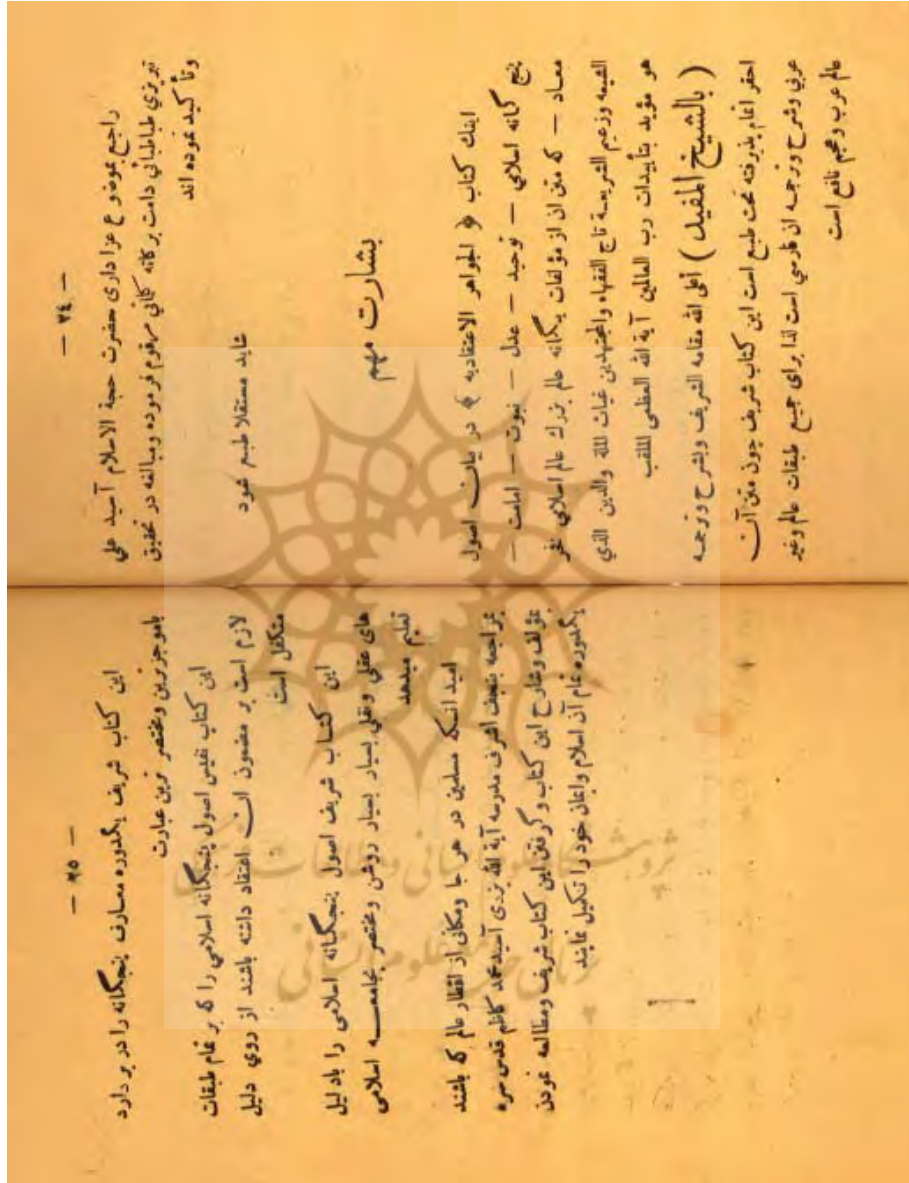 — ٢٤ —
راجع بموضوع عزا داری حضرت حجة الاسلام آسيد علي
تبريزي طباطبائي دامت بركاته كتابي مرقوم فرموده ومبالغه در تحقيق
وتأكيد نموده اند
شايد مستقلا طبع شود
بشارت مهم
اينك كتاب ﴿ الجواهر الاعتقاديه ﴾ در بيان اصول
پنج گانه اسلامي — توحيد — عدل — نبوت — امامت —
معاد — كه متن ان از مؤلفات يگانه عالم بزرك عالم اسلامي فخر
الشيعه وزعيم الشريعة تاج الفقهاء والمجتهدين غياث الملة والدين الذي
هو مؤيد بتأييدات رب العالمين آية الله العظمى الملقب
( بالشيخ المفيد ) أعلى الله مقامه الشريف وبشرح وترجمه
احقر انجام پذيرفته تحت طبع است اين كتاب شريف چون متن آن
عربي وشرح وترجمه ان فارسي است لذا براى جميع طبقات عالم وغير
عالم عرب وعجم نافع است
— ٢٥ —
اين كتاب شريف يكدوره معارف پنجگانه را در بر دارد
باموجزترين ومختصر ترين عبارت
اين كتاب نفيس اصول پنجگانه اسلامي را كه بر تمام طبقات
لازم است بر مضمون ان اعتقاد داشته باشند از روي دليل
متكفل است
اين كتاب شريف اصول پنجگانه اسلامى را بادليل
هاى عقلي ونقلي بسيار بسيار روشن ومختصر بجامعه اسلامى
تعليم ميدهد
اميد انكه مسلمين در هر جا ومكانى از اقطار عالم كه باشند
بمراجعه بنجف اشرف مدرسه آية الله يزدى آسيد محمد كاظم قدس سره
بمؤلف وشارح اين كتاب وگرفتن اين كتاب شريف ومطالعه نمودن
يكدوره تمام آن اسلام وايمان خود را تكميل نمايند
پژوهشگاه علوم انسانی و مطالعات فرهنگی
پرتال جامع علوم انسانی